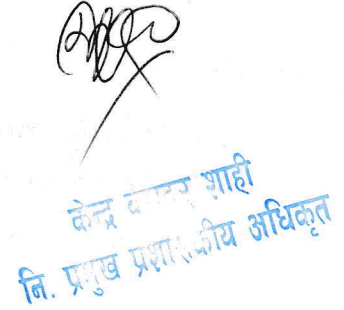 केन्द्र बहादुर शाही
नि. प्रमुख प्रशासकीय अधिकृत